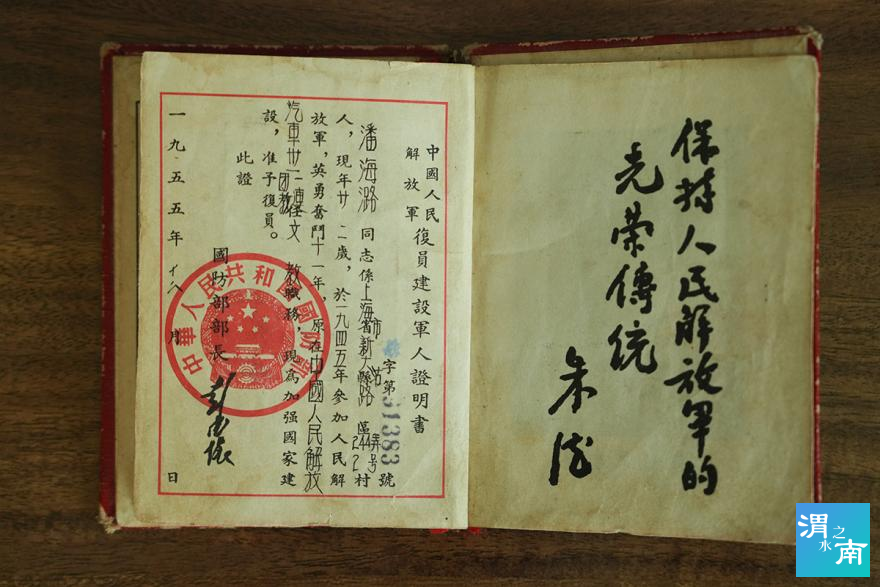 保持人民解放軍的
光荣傳統
朱德
中國人民
解放軍
復員建設軍人證明書
字第51383號
潘海潞同志係上海省市新大縣路區44弄22号村
人，現年廿二歲，於一九四五年參加人民解
放軍，英勇奮鬥十一年，原在中國人民解放
汽車卅一团二連任文教職務，現為加强國家建
設，准予復員。
此證
國防部部長 彭德懷
中華人民共和國國防部
一九五五年 月 日
渭水之南